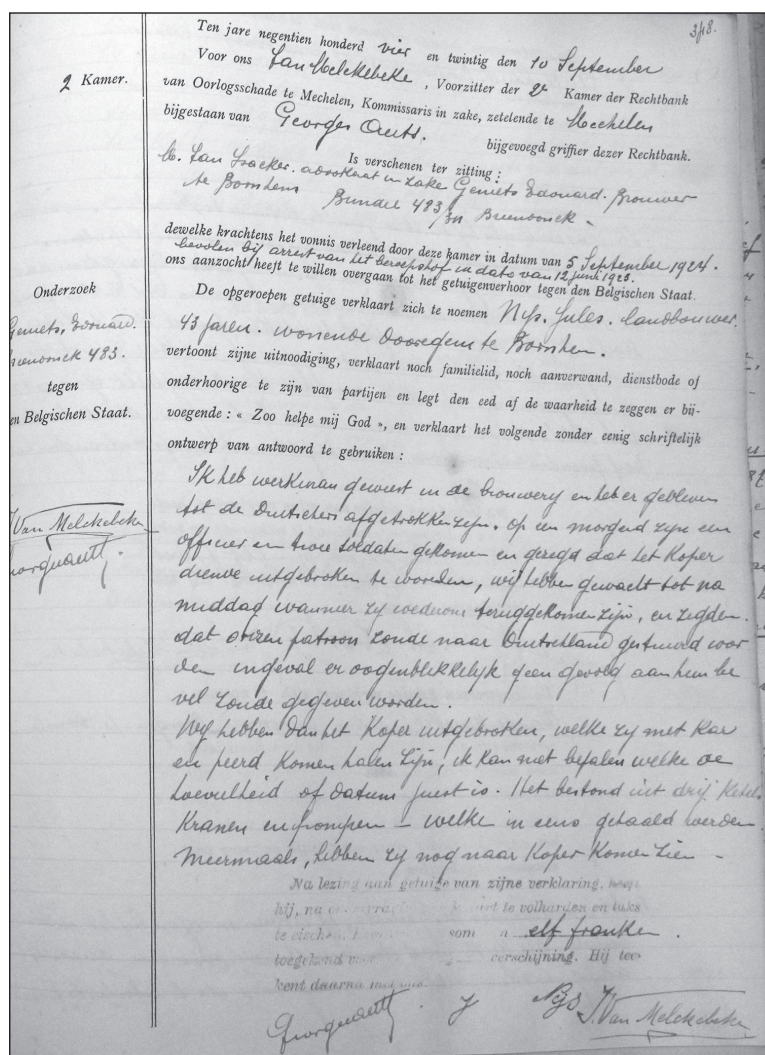 348.
Ten jare negentien honderd vier en twintig den 10 September
Voor ons Jan Melckebeke, Voorzitter der 2e Kamer der Rechtbank
2 Kamer.
van Oorlogsschade te Mechelen, Kommissaris in zake, zetelende te Mechelen
bijgestaan van Georges
bijgevoegd griffier dezer Rechtbank.
Is verschenen ter zitting :
M. Jan advokaat in zake Geniets Edouard. Brouwer
te Bornhem Bundel 483
dewelke krachtens het vonnis verleend door deze kamer in datum van 5 September 1924.
bevolen bij arrest van het beroepshof in dato van 12 juni 1923.
ons aanzocht heeft te willen overgaan tot het getuigenverhoor tegen den Belgischen Staat.
Onderzoek
Geniets, Edouard.
483.
tegen
en Belgischen Staat.
De opgeroepen getuige verklaart zich te noemen Nijs. Jules. landbouwer.
43 jaren. wonende te Bornhem.
vertoont zijne uitnoodiging, verklaart noch familielid, noch aanverwand, dienstbode of
onderhoorige te zijn van partijen en legt den eed af de waarheid te zeggen er bij-
voegende : « Zoo helpe mij God », en verklaart het volgende zonder eenig schriftelijk
ontwerp van antwoord te gebruiken :
Ik heb werkman geweest in de brouwery en heb er gebleven
tot de Duitschers afgetrokken zijn. Op een morgend zijn een
officier en twee soldaten gekomen en gezegd dat het Koper
diende uitgebroken te worden, wij hebben gewacht tot na
middag wanneer zij wederom teruggekomen zijn, en zegden
dat onzen patroon zoude naar Duitschland gestuurd wor
den ingeval er oogenblikkelijk geen gevolg aan hun be
vel zoude gegeven worden.
Wij hebben dan het Koper uitgebroken, welke zij met Kar
en peerd Komen halen zijn, ik kan niet bepalen welke de
hoeveelheid of datum juist is. Het bestond uit drij Ketels
Kranen en pompen – welke in eens gehaald werden
Meermaals, hebben zij nog naar Koper Komen zien –
J Van Melckebeke
Na lezing aan getuige van zijne verklaring, heeft
hij, na te volharden en taks
te eischen som elf franken.
toegekend verschijning. Hij tee-
kent daarna met ons.
J Nijs J. Van Melckebeke